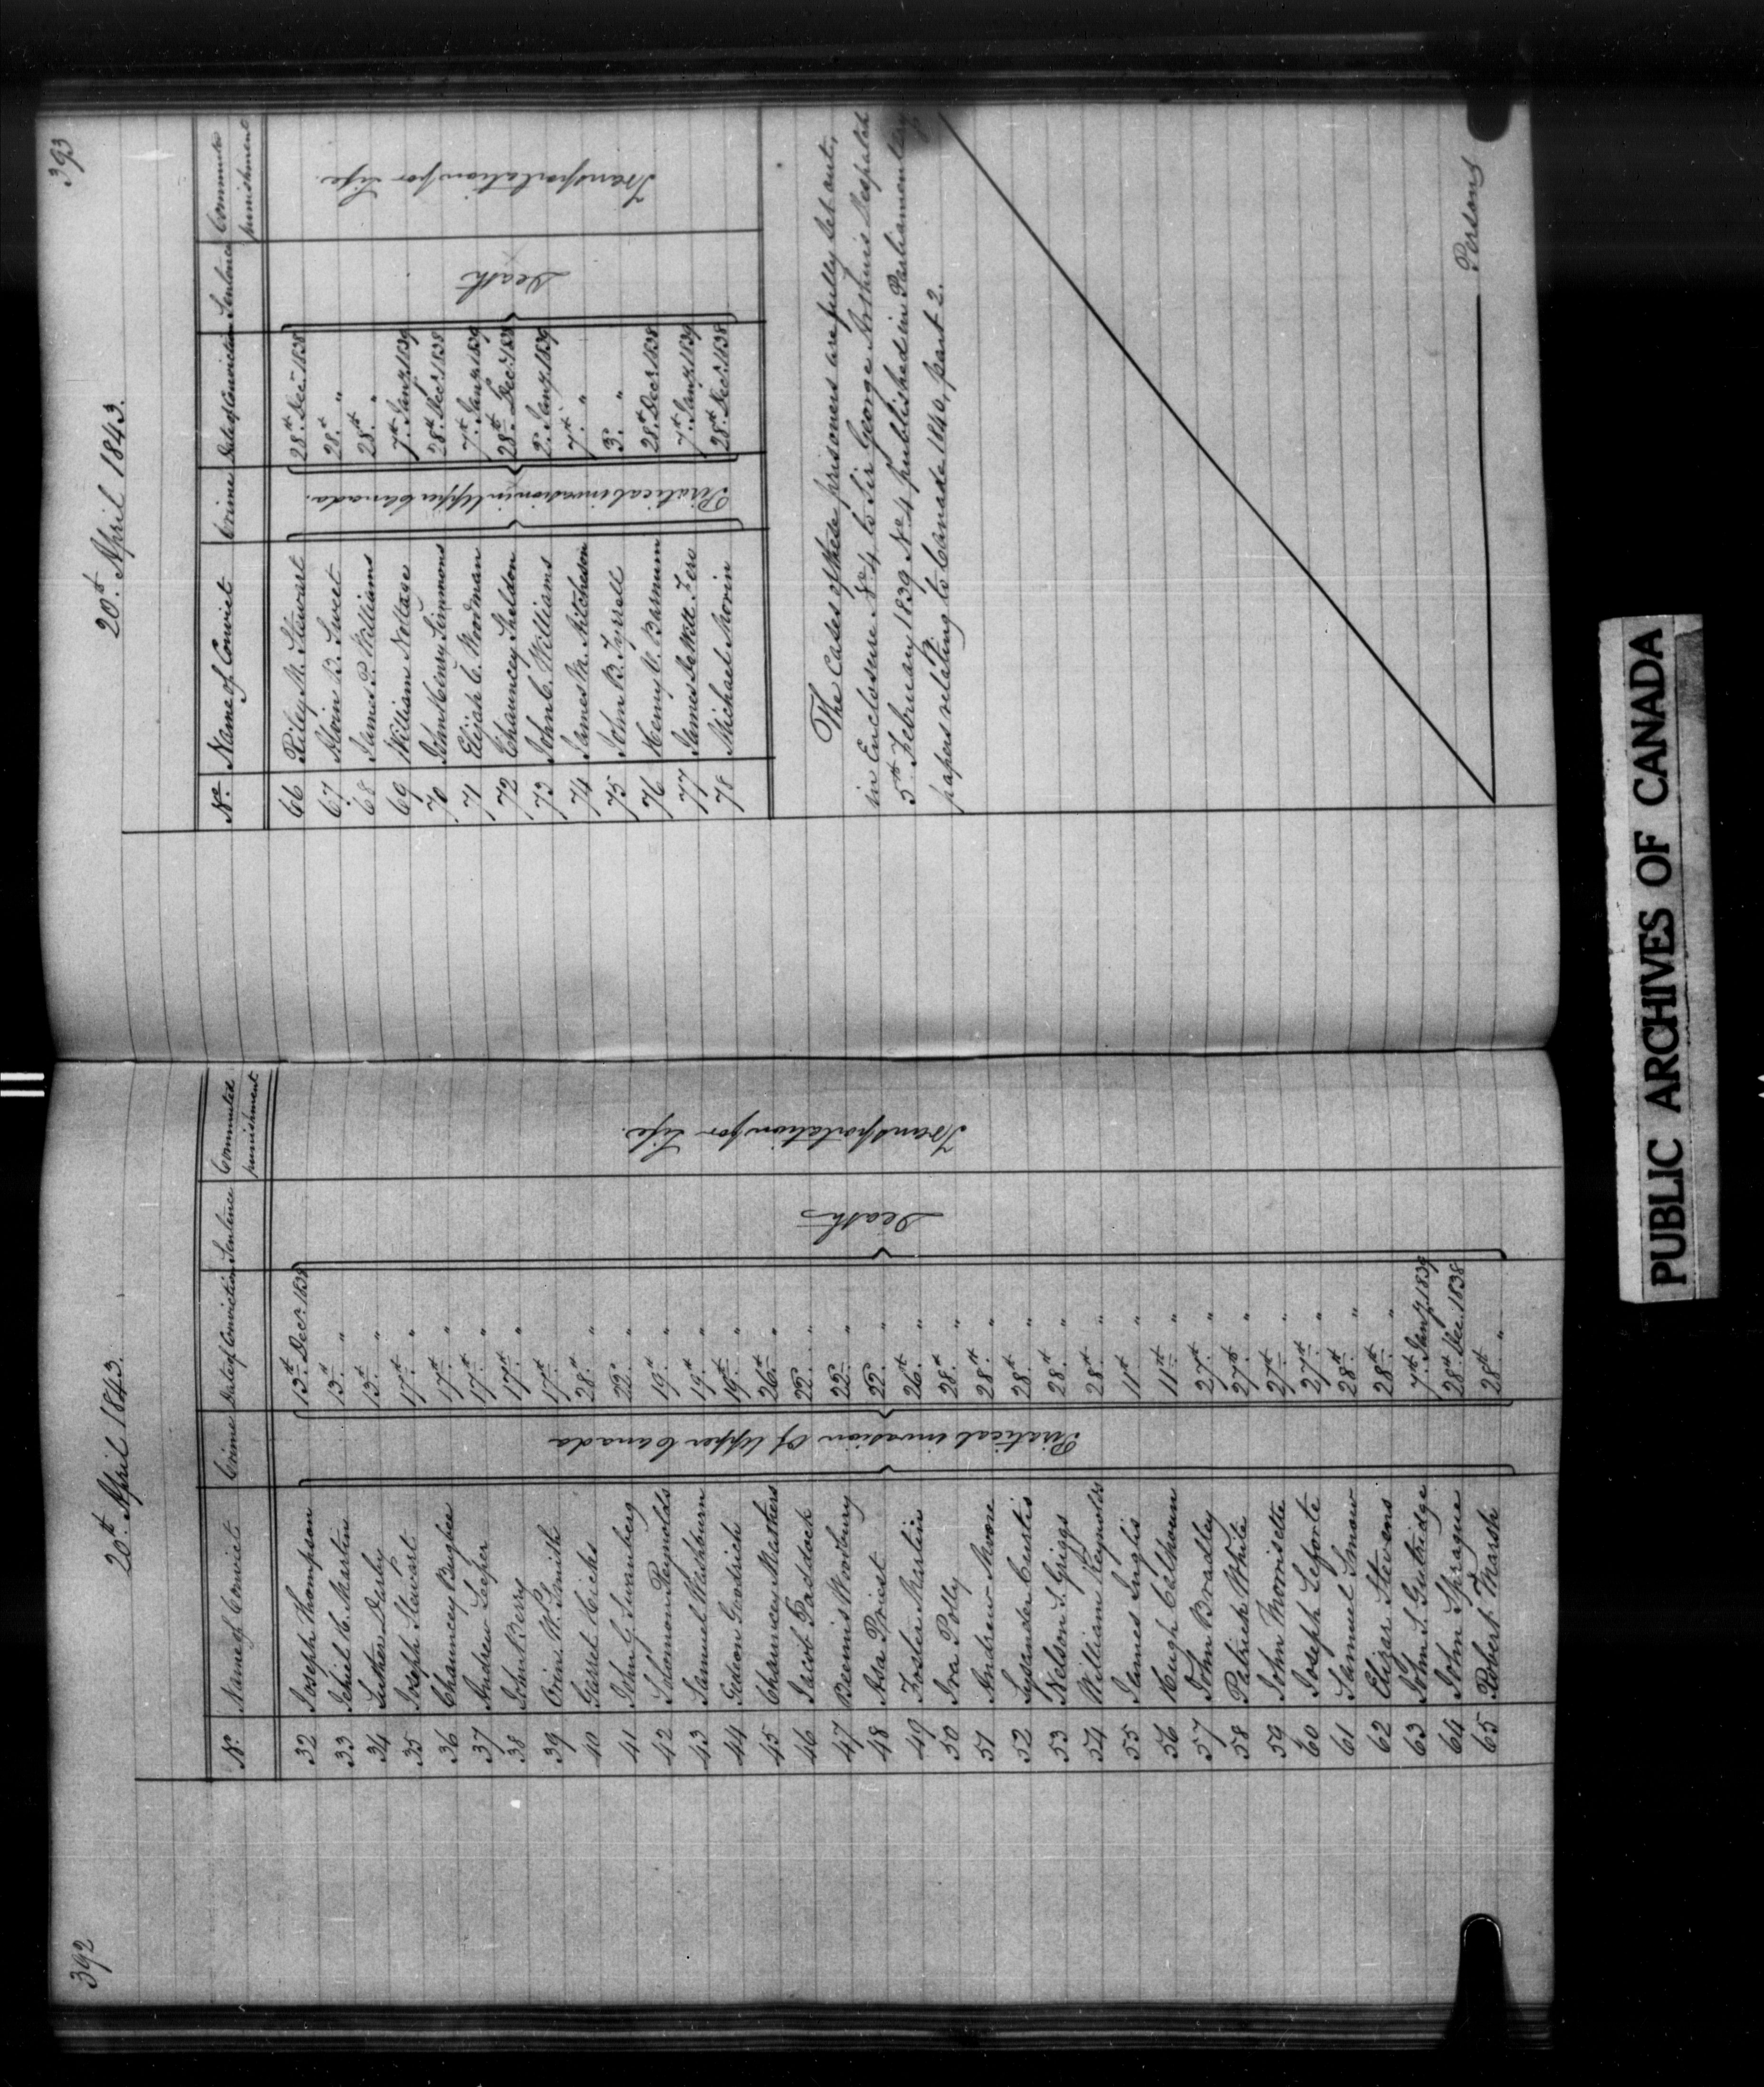 392
20th April 1843.
No. Name of Convict Crime Date of Conviction Sentence Commuted punishment
32 Joseph Thompson 13th Decr. 1838
33 Jehiel H. Martin 13th "
34 Luther Darby 13th "
35 Joseph Stewart 17th "
36 Chauncey Bugbee 17th "
37 Andrew Leeper 17th "
38 John Berry 17th "
39 Orin W. Smith 17th
40 Garret Hicks 28th "
41 John G. Swanberg 22d "
42 Solomon Reynolds 19th "
43 Samuel Washburn 19th "
44 Gedeon Goodrich 19th "
45 Chauncey Mathers 26th "
46 Jacob Paddock 22d "
47 Beemis Woodbury 22d "
48 Asa Priest 22d "
49 Foster Martin 26th "
50 Ira Polly 28th "
51 Andrew Moore 28th "
52 Lysander Curtis 28th "
53 Nelson J. Griggs 28th "
54 William Reynolds 28th "
55 James Inglis 11th "
56 Hugh Calhoun 11th "
57 John Bradley 27th "
58 Patrick White 27th "
59 John Morrisette 27th "
60 Joseph Leforte 27th "
61 Samuel Snow 28th "
62 Elizar Stevens 28th "
63 John S. Gutridge 7th Jany 1839
64 John Sprague 28th Dec. 1838
65 Robert Marsh 28th "
Piratical invasion of Upper Canada
Death
Transportation for Life.
393
20th April 1843.
No. Name of Convict Crime Date of Conviction Sentence Commuted punishment
66 Riley M. Stewart 28th Decr. 1838
67 Alvin B. Sweet 28th "
68 James P. Williams 28th "
69 William Nottage 7th Jany 1839
70 John Henry Simmons 28th Decr. 1838
71 Elijah C. Woodman 7th Jany 1839
72 Chauncey Sheldon 28th Decr. 1838
73 John C. Williams 2d Jany 1839
74 James M. Aitcheson 7th "
75 John B. Tyrrell 3d "
76 Henry V. Barnum 28th Decr. 1838
77 James DeWitt Fero 7th Jany 1839
78 Michael Morin 28th Decr. 1838
Piratical invasion in Upper Canada.
Death
Transportation for Life.
The Cases of these prisoners are fully set out,
in Enclosure No. 4 to Sir George Arthur's Despatch
5th February 1839 No. 4 published in Parliamentary
papers relating to Canada 1840, part 2.
Persons
PUBLIC ARCHIVES OF CANADA